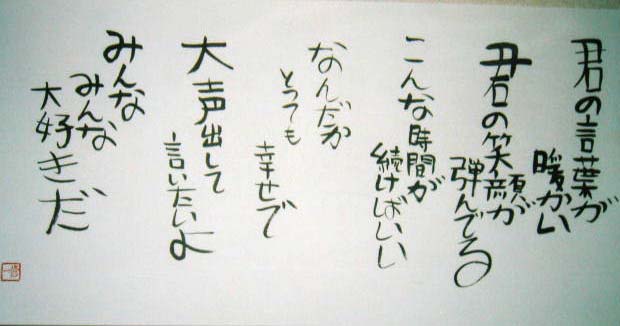 君の言葉が
暖かい
君の笑顔が
弾んでる
こんな時間が
続けばいい
なんだか
とっても
幸せで
大声出して
言いたいよ
みんな
みんな
大好きだ